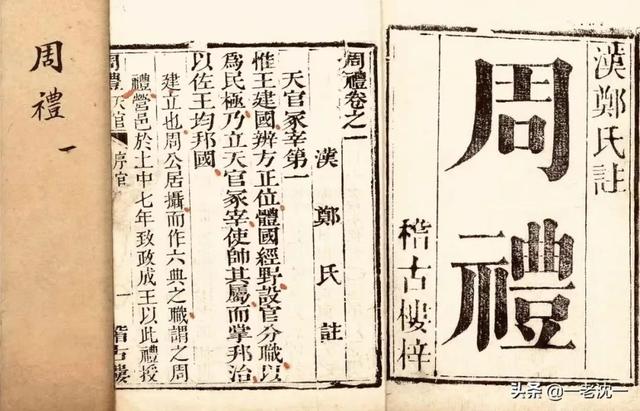 漢鄭氏註
周禮
稽古樓梓
周禮卷之一
漢鄭氏註
天官冢宰第一
惟王建國辨方正位體國經野設官分職以
爲民極乃立天官冢宰使帥其屬而掌邦治
以佐王均邦國
建立也周公居攝而作六典之職謂之周
禮營邑於土中七年致政成王以此禮授
周禮天官 序官 一 稽古樓
周禮 一
头条 @一老沈一